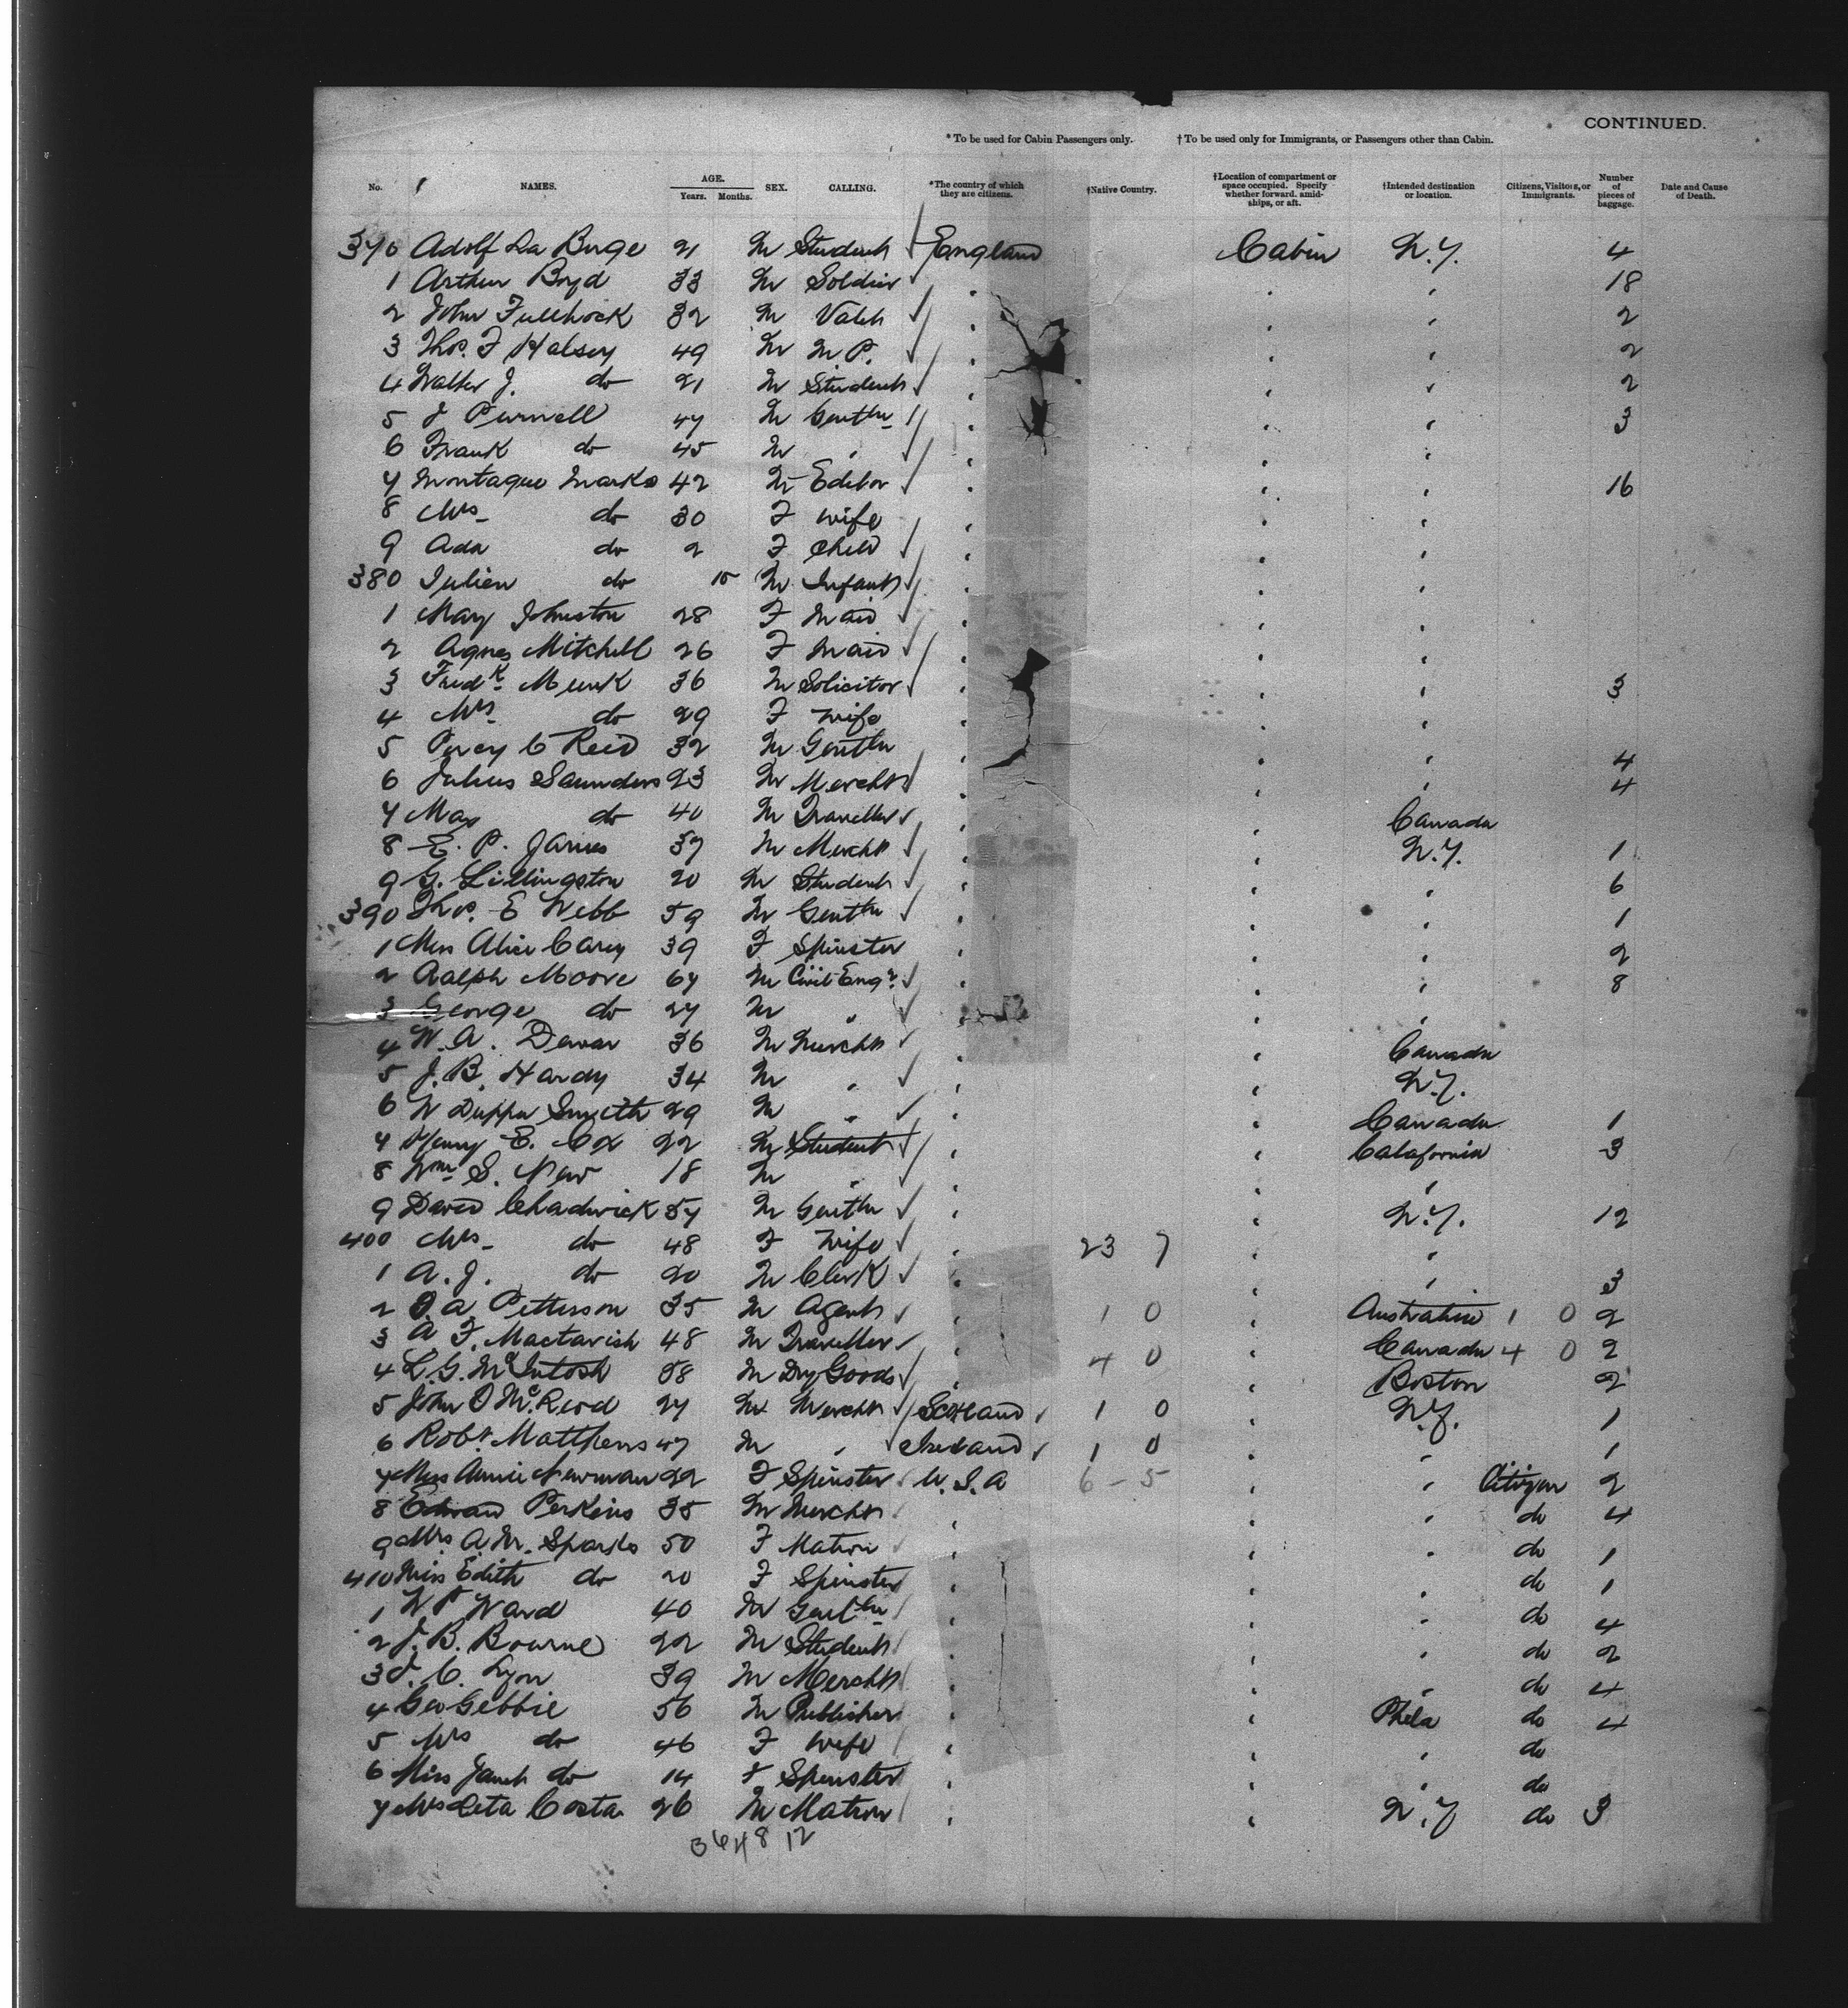 CONTINUED.
* To be used for Cabin Passengers only. † To be used only for Immigrants, or Passengers other than Cabin.
No. NAMES. AGE. Years. Months. SEX. CALLING. *The country of which they are citizens. †Native Country. †Location of compartment or space occupied. Specify whether forward, amidships, or aft. †Intended destination or location. Citizens, Visitors, or Immigrants. Number of pieces of baggage. Date and Cause of Death.
370 Adolf La Buge 21 M Student England Cabin N.Y. 4
1 Arthur Boyd 33 M Soldier " " " 18
2 John Fullhock 32 M Valet " " " 2
3 Thos. F Halsey 49 M M P. " " " 2
4 Walter J. do 21 M Student " " " 2
5 J Purnell 47 M Gentln " " " 3
6 Frank do 45 M " " " "
7 Montague Marks 42 M Editor " " " 16
8 Mrs do 30 F Wife " " "
9 Ada do 2 F Child " " "
380 Julien do 10 M Infant " " "
1 Mary Johnston 28 F Maid " " "
2 Agnes Mitchell 26 F Maid " " "
3 Fredk Meunk 36 M Solicitor " " " 3
4 Mrs do 29 F Wife " " "
5 Percy C Reid 32 M Gentln " " " 4
6 Julius Saunders 23 M Mercht " " " 4
7 Max do 40 M Traveller " " Canada
8 E. P. James 37 M Mercht " " N.Y. 1
9 G. Lillingston 20 M Student " " " 6
390 Thos. E Webb 59 M Gentln " " " 1
1 Miss Alice Carey 39 F Spinster " " " 2
2 Ralph Moore 67 M Civil Engr. " " " 8
3 George do 27 M " " " "
4 W. A. Dewar 36 M Mercht " " Canada
5 J. B. Hardy 34 M " " " N.Y.
6 W Duppa Smyith 29 M " " " Canada 1
7 Henry E. Cox 22 M Student " " Calafornia 3
8 Wm S. New 18 M " " " "
9 David Chadwick 57 M Gentln " " N.Y. 12
400 Mrs do 48 F Wife " 23 7 " "
1 A. J. do 20 M Clerk " " " 3
2 J A Petterson 35 M Agent " 1 0 " Australia 1 0 2
3 A F. Mactavish 48 M Traveller " " Canada 4 0 2
4 L. G. McIntosh 58 M Dry Goods " 4 0 " Boston 2
5 John O McReod 27 M Mercht Scotland 1 0 " N.Y. 1
6 Robt. Matthews 47 M " Ireland 1 0 " " 1
7 Miss Annie Newman 22 F Spinster U.S.A 6 - 5 " " Citizen 2
8 Edward Perkins 35 M Mercht " " " do 4
9 Mrs A. M. Sparks 50 F Matron " " " do 1
410 Miss Edith do 20 F Spinster " " " do 1
1 W P Ward 40 M Gentln " " " do 4
2 J. B. Bourne 22 M Student " " " do 2
3 J. C. Lyon 39 M Mercht " " " do 4
4 Geo Gebbie 56 M Publisher " " Phila do 4
5 Mrs do 46 F Wife " " " do
6 Miss Janet do 14 F Spinster " " " do
7 Mrs Leta Costa 26 M Matron " " N.Y do 3
36 48 12